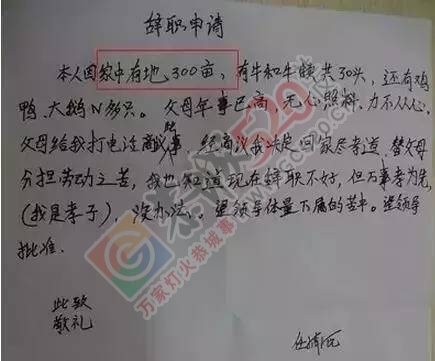 辞职申请
本人因家中有地300亩，有牛和牛犊共30头，还有鸡
鸭、大鹅N多只。父母年事已高，无心照料，力不从心，
父母给我打电话商议此事，经商议我决定回家尽孝道，替父母
分担劳动之苦，我也知道现在辞职不好，但万事孝为先
(我是孝子)，没办法。望领导体量下属的苦中。望领导
批准.
此致
敬礼
520
万家灯火恭城事